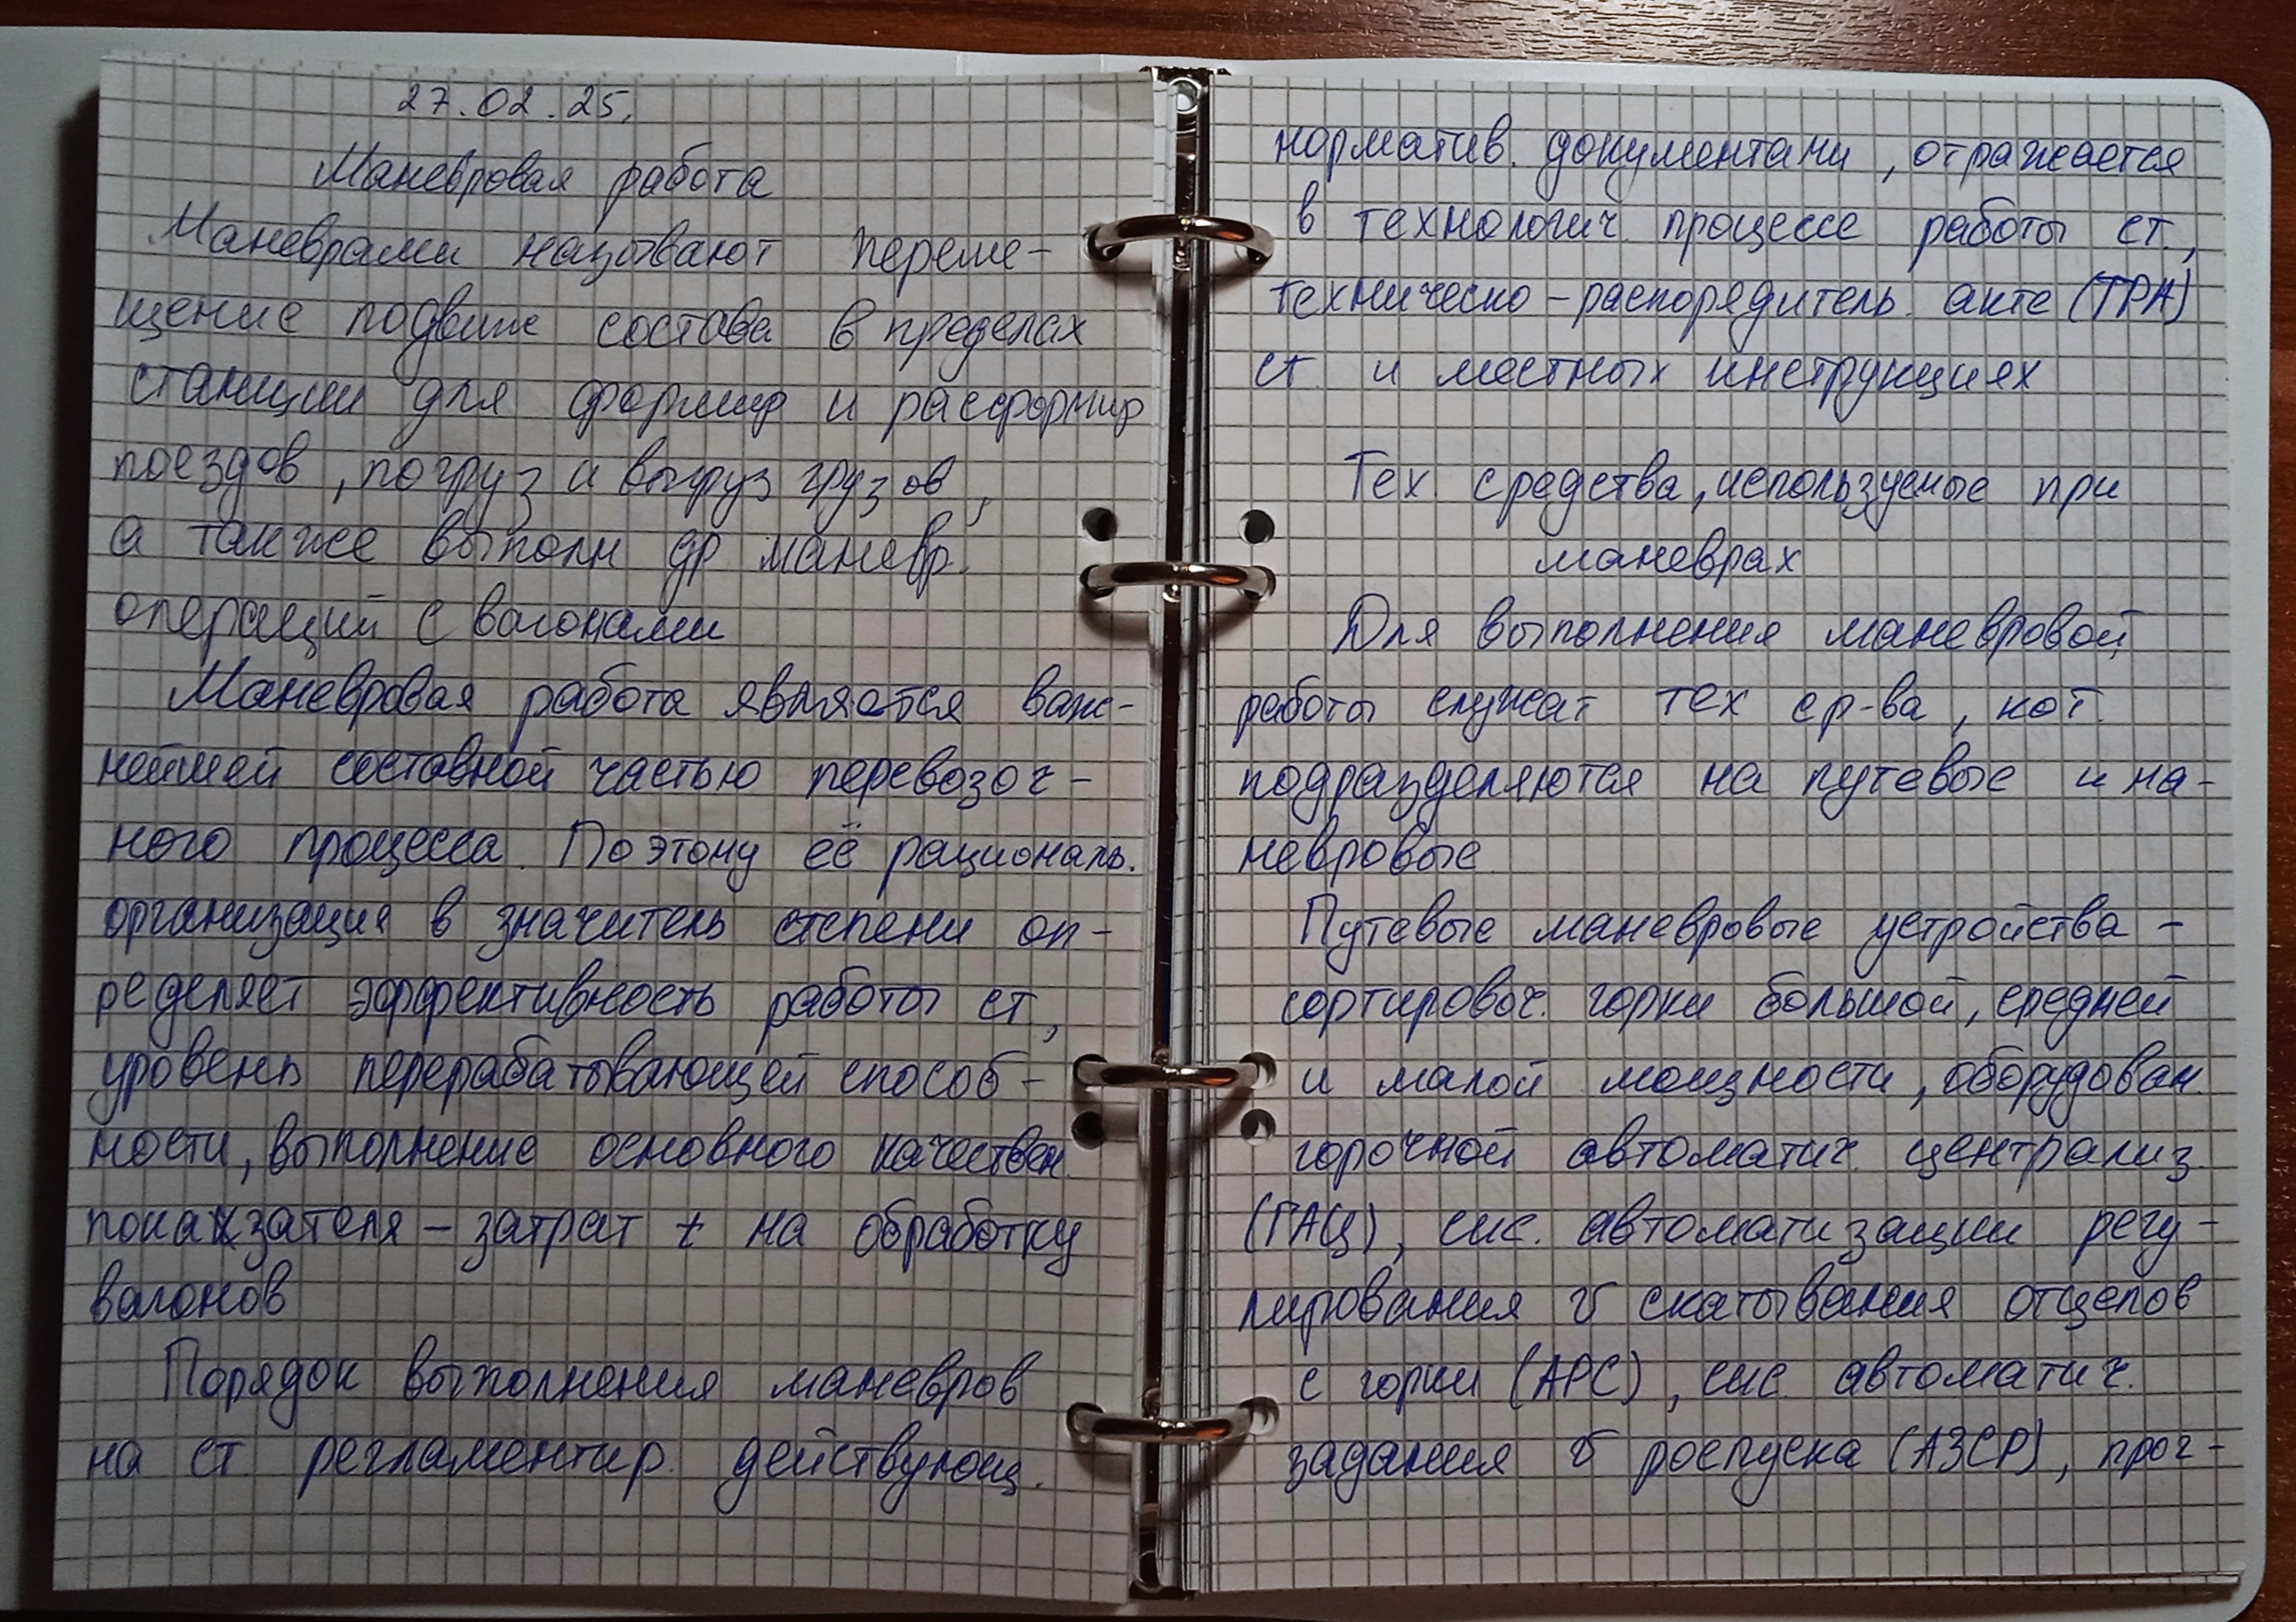 27.02.25.
Маневровая работа
Маневрами называют переме-
щение подвиж состава в пределах
станции для формир и расформир
поездов, погруз и выгруз грузов,
а также выполн др маневр.
операций с вагонами
Маневровая работа является важ-
нейшей составной частью перевозоч-
ного процесса. Поэтому её рациональ.
организация в значитель степени оп-
ределяет эффективность работы ст.,
уровень перерабатывающей способ-
ности, выполнение основного качествен.
показателя – затрат t на обработку
вагонов
Порядок выполнения маневров
на ст. регламентир. действующ.
норматив. документами, отражается
в технологич. процессе работы ст.,
техническо-распорядитель. акте (ТРА)
ст. и местных инструкциях
Тех средства, используемые при
маневрах
Для выполнения маневровой
работы служат тех ср-ва, кот.
подразделяются на путевые и на-
невровые
Путевые маневровые устройства –
сортировоч. горки большой, средней
и малой мощности, оборудован.
горочной автоматич. централиз.
(ГАЦ), сис. автоматизации регу-
лирования v скатывания отцепов
с горки (АРС), сис. автоматич.
задания v роспуска (АЗСР), прог-